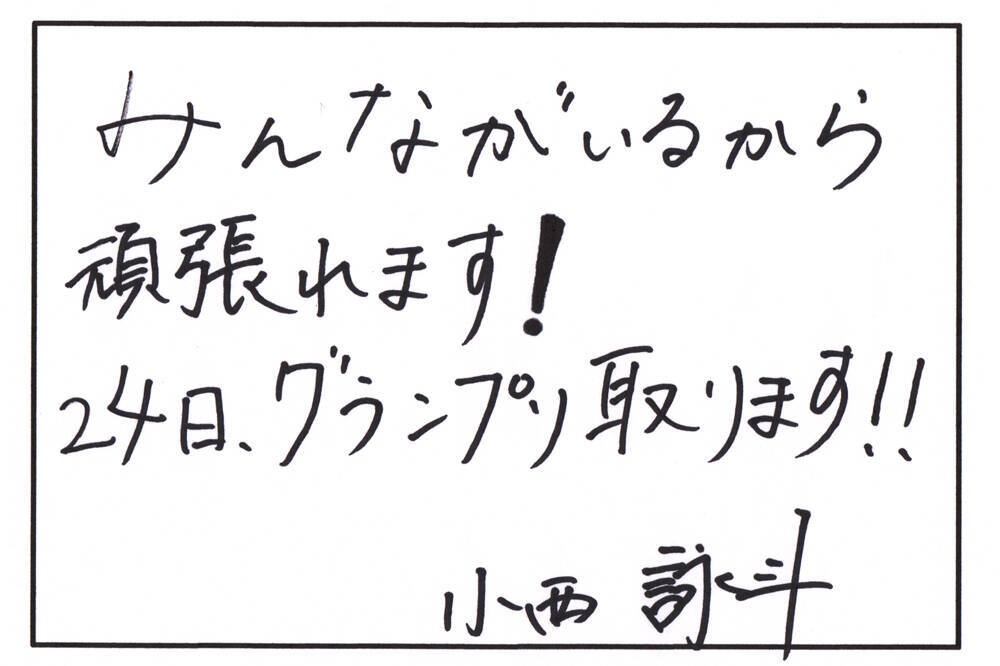 みんながいるから
頑張れます!
24日、グランプリ取ります!!
小西 詠斗